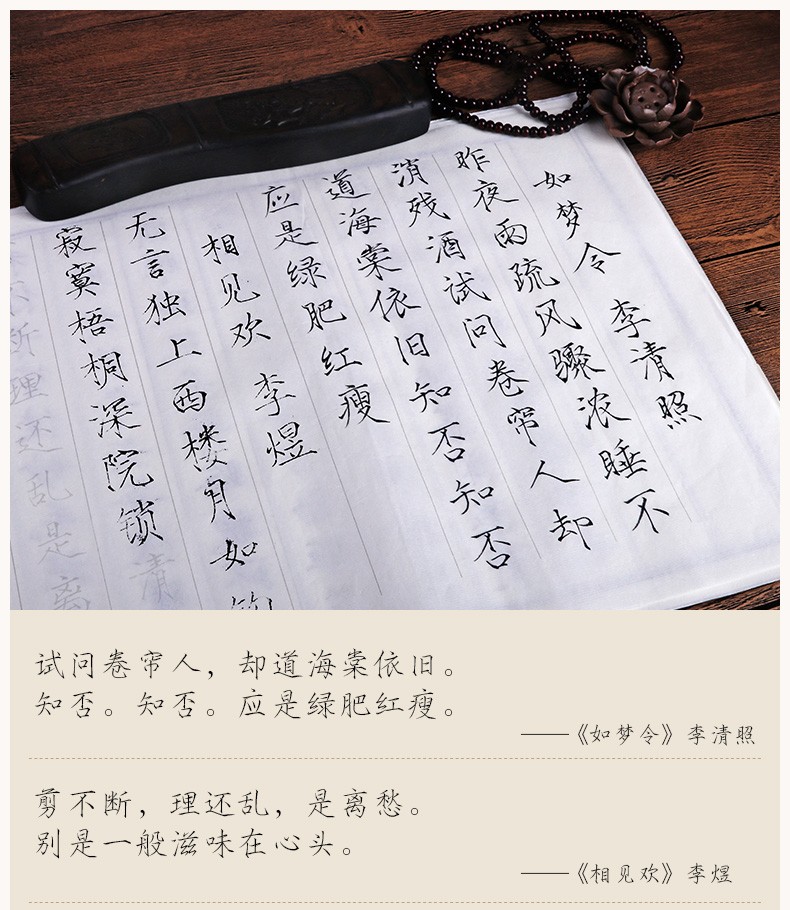 如梦令 李清照
昨夜雨疏风骤浓睡不
消残酒试问卷帘人却
道海棠依旧知否知否
应是绿肥红瘦
相见欢 李煜
无言独上西楼月如
寂寞梧桐深院锁清
理还乱是离
试问卷帘人，却道海棠依旧。
知否。知否。应是绿肥红瘦。
——《如梦令》李清照
剪不断，理还乱，是离愁。
别是一般滋味在心头。
——《相见欢》李煜